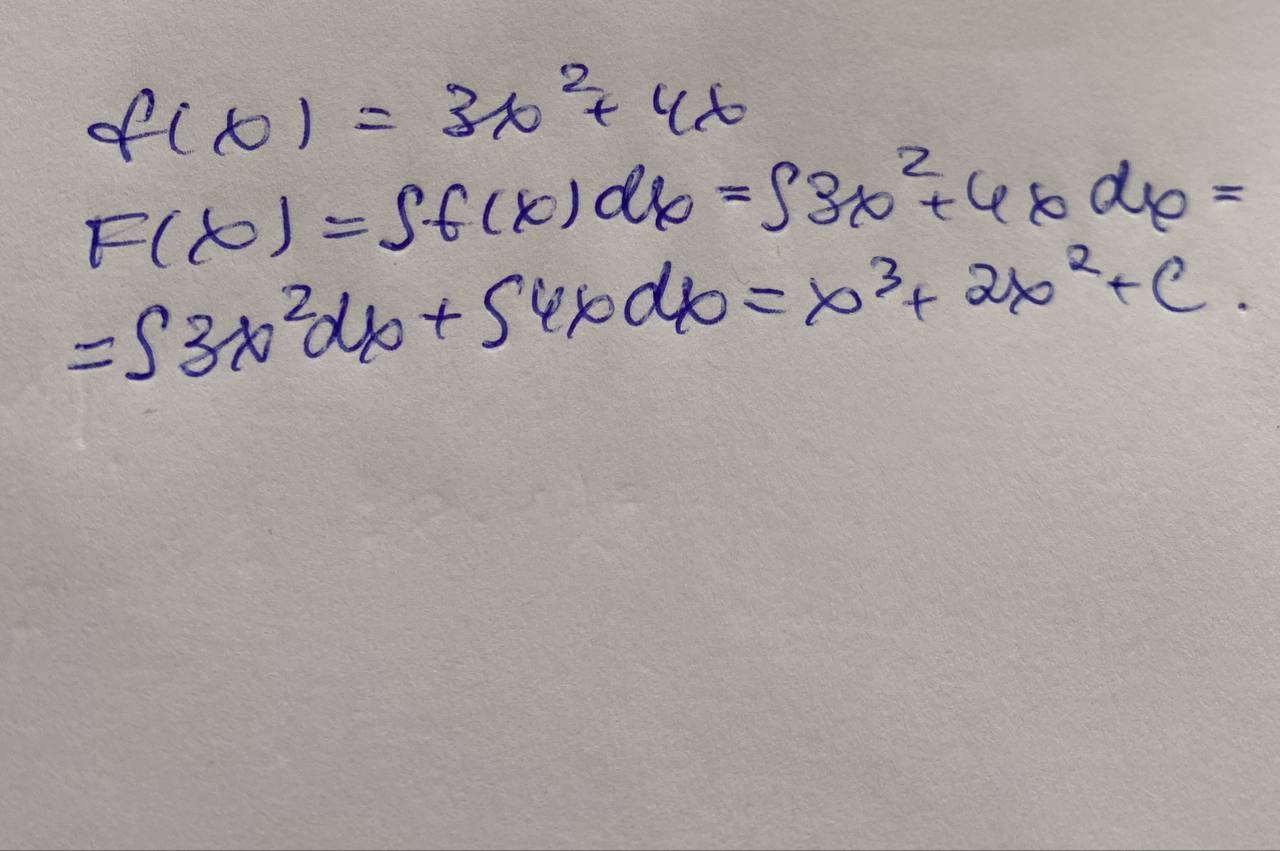 f(x) = 3x² + 4x
F(x) = ∫f(x)dx = ∫3x² + 4x dx =
= ∫3x²dx + ∫4xdx = x³ + 2x² + C.